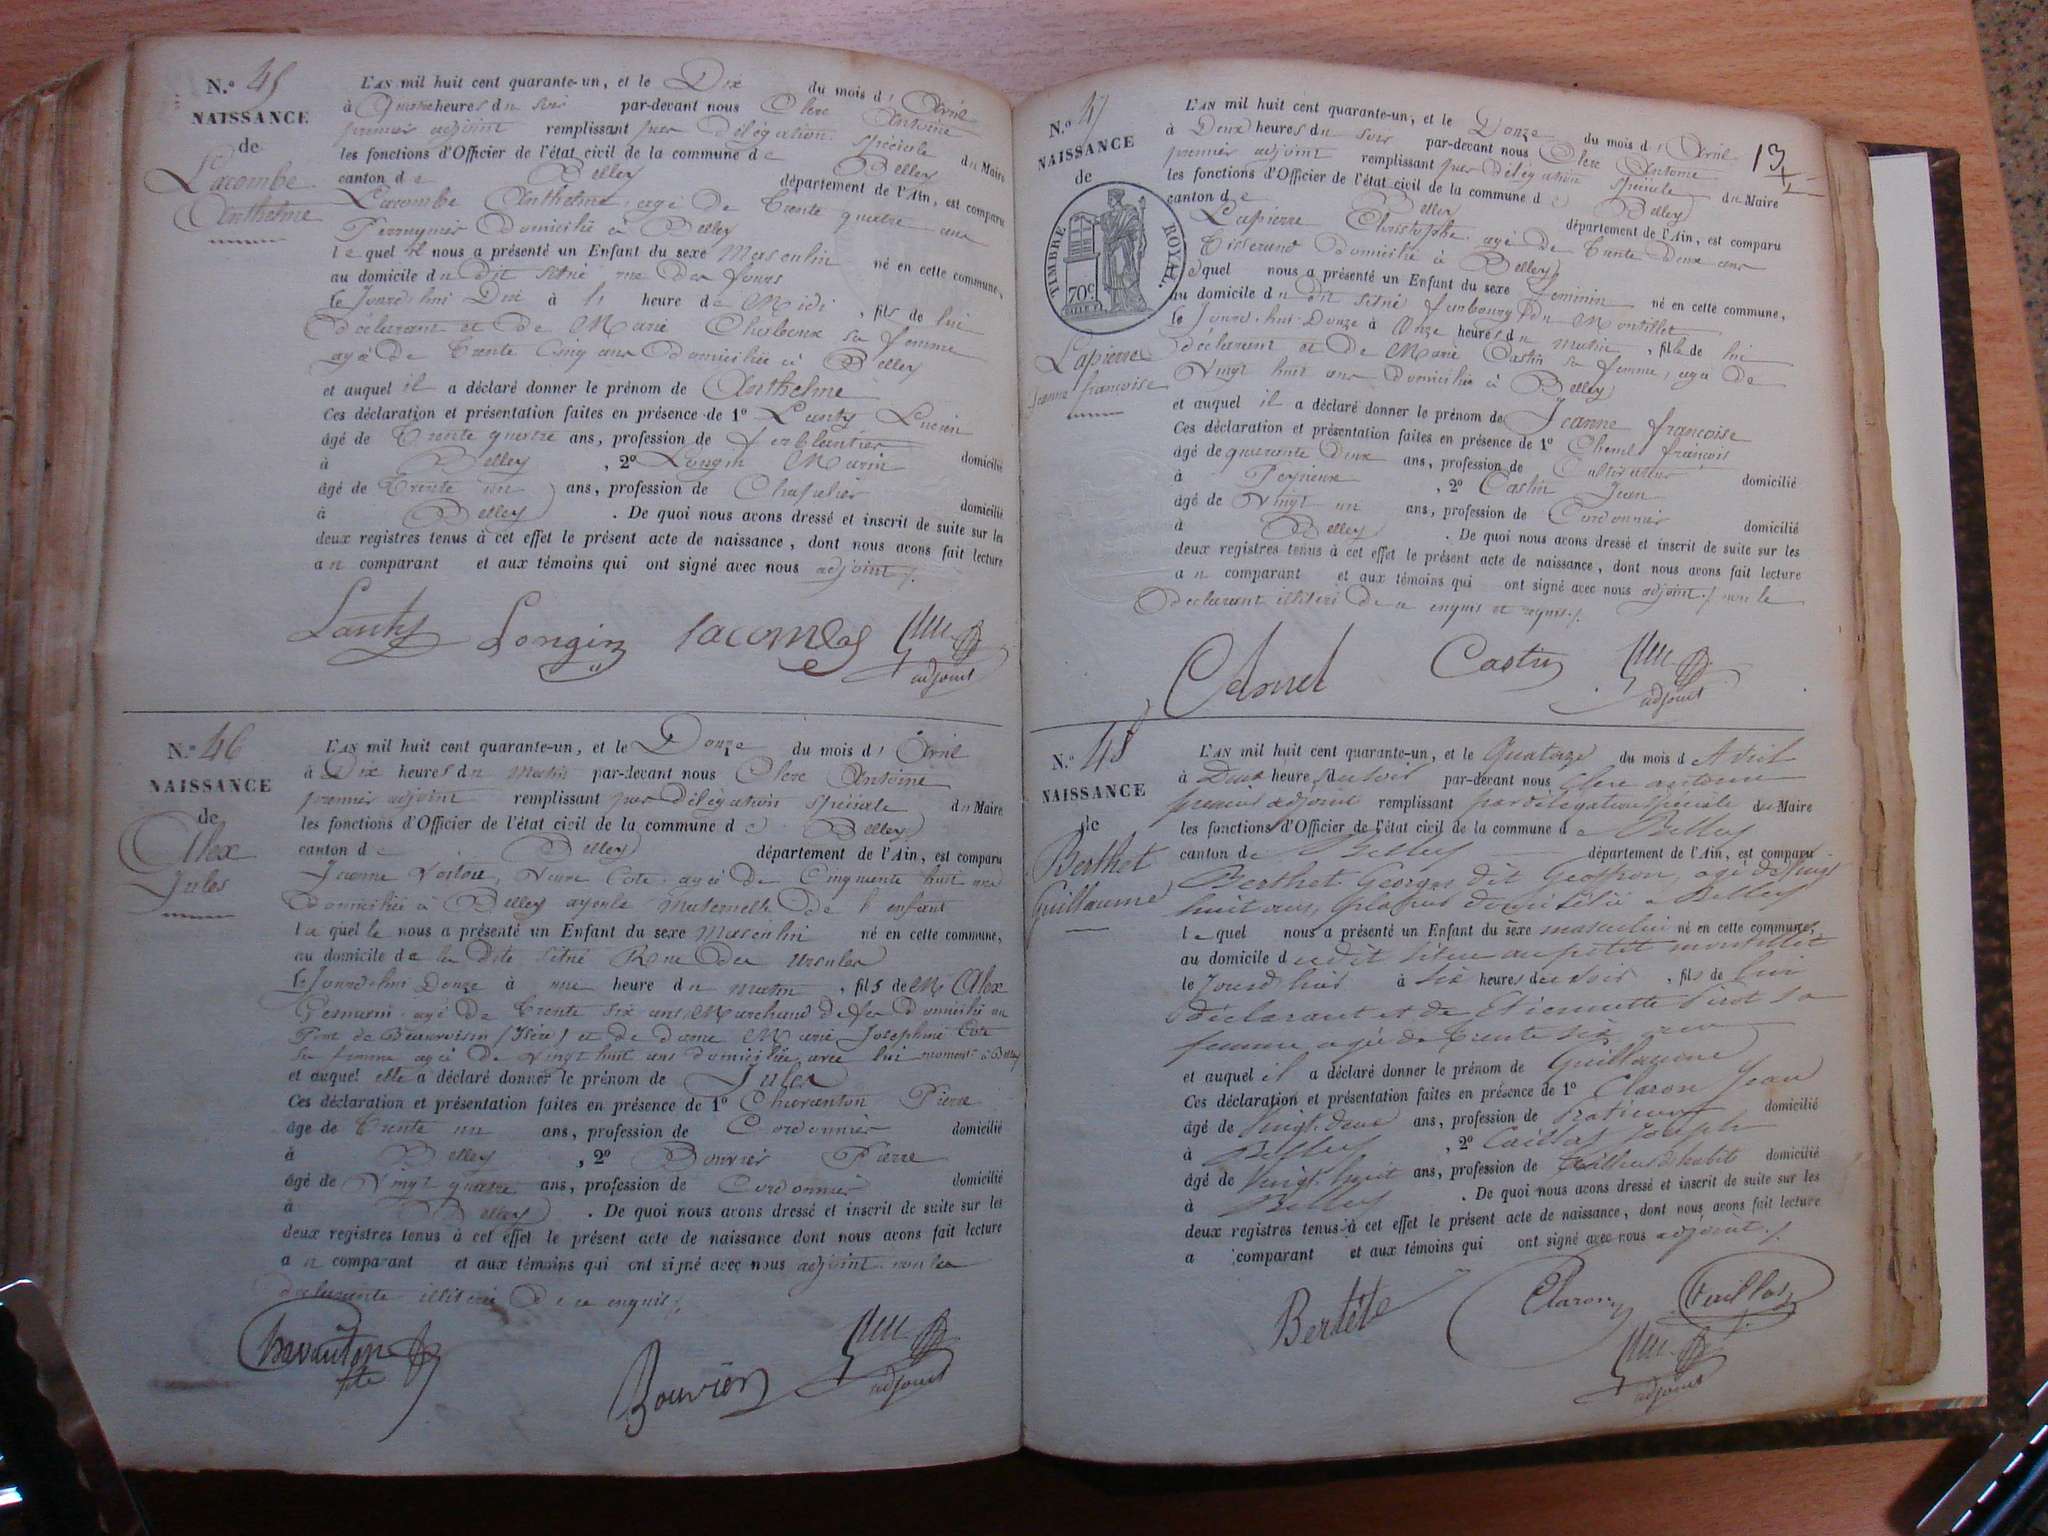 N.º 45
NAISSANCE
de
Lacombe
Anthelme
L'AN mil huit cent quarante-un, et le Dix du mois d' Avril
à Quatre heures du soir par-devant nous Clerc Antoine
premier adjoint remplissant par délégation spéciale du Maire
les fonctions d'Officier de l'état civil de la commune de Belley
canton de Belley département de l'Ain, est comparu
Lacombe Anthelme, agé de Trente quatre ans
Perruquier Domicilié à Belley
lequel il nous a présenté un Enfant du sexe Masculin né en cette commune,
au domicile du dit situé rue des fours
le Jourdhui Dix à heure de Midi, fils de lui
déclarant et de Marie sa femme
agée de Trente Cinq ans Domiciliée à Belley
et auquel il a déclaré donner le prénom de Anthelme
Ces déclaration et présentation faites en présence de 1º Lanty Lucien
âgé de Trente quatre ans, profession de ferblantier domicilié
à Belley, 2º Longin Marin
âgé de Trente un ans, profession de Chapelier domicilié
à Belley. De quoi nous avons dressé et inscrit de suite sur les
deux registres tenus à cet effet le présent acte de naissance, dont nous avons fait lecture
au comparant et aux témoins qui ont signé avec nous adjoint /.
Lanty Longin Lacombe
adjoint
N.º 46
NAISSANCE
de
Alex
Jules
L'AN mil huit cent quarante-un, et le Douze du mois d' Avril
à Dix heures du matin par-devant nous Clerc Antoine
premier adjoint remplissant par délégation spéciale du Maire
les fonctions d'Officier de l'état civil de la commune de Belley
canton de Belley département de l'Ain, est comparu
Jeanne Veuve Cote agée de Cinquante huit ans
Domiciliée à Belley ayeule Maternelle De l'enfant
laquelle nous a présenté un Enfant du sexe Masculin né en cette commune,
au domicile de la dite situé Rue des Ursules
le Jourdhui Douze à une heure du matin, fils de M Alex
agé de Trente six ans, Marchand de fer Domicilié au
Pont de Beauvoisin (Isère) et de dame Marie Joséphine Cote
sa femme agée de Vingt huit ans domiciliée avec lui à Belley
et auquel elle a déclaré donner le prénom de Jules
Ces déclaration et présentation faites en présence de 1º Chavanton Pierre
âgé de Trente un ans, profession de Cordonnier domicilié
à Belley, 2º Bouvier Pierre
âgé de Vingt quatre ans, profession de Cordonnier domicilié
à Belley. De quoi nous avons dressé et inscrit de suite sur les
deux registres tenus à cet effet le présent acte de naissance dont nous avons fait lecture
au comparant et aux témoins qui ont signé avec nous adjoint non la
déclarante illitéré De ce enquis /.
Chavanton
Bouvier
adjoint
N.º 47
NAISSANCE
de
TIMBRE ROYAL.
70c
Lapierre
Jeanne françoise
13
L'AN mil huit cent quarante-un, et le Douze du mois d' Avril
à Deux heures du soir par-devant nous Clerc Antoine
premier adjoint remplissant par délégation spéciale du Maire
les fonctions d'Officier de l'état civil de la commune de Belley
canton de Belley département de l'Ain, est comparu
Lapierre Christophe agé de Trente Deux ans
Tisserand Domicilié à Belley
lequel nous a présenté un Enfant du sexe feminin né en cette commune,
au domicile du dit situé faubourg Du Montillet
le Jourd'hui Douze à Onze heures du matin, fille de lui
déclarant et De Marie Castin sa femme, agée De
Vingt huit ans Domiciliée à Belley
et auquel il a déclaré donner le prénom de Jeanne françoise
Ces déclaration et présentation faites en présence de 1º françois
âgé de quarante Deux ans, profession de Cultivateur domicilié
à Peyrieux, 2º Castin Jean
âgé de Vingt un ans, profession de Cordonnier domicilié
à Belley. De quoi nous avons dressé et inscrit de suite sur les
deux registres tenus à cet effet le présent acte de naissance, dont nous avons fait lecture
au comparant et aux témoins qui ont signé avec nous adjoint / non le
Déclarant illitéré De ce enquis et requis /.
Castin
adjoint
N.º 48
NAISSANCE
de
Berthet
Guillaume
L'AN mil huit cent quarante-un, et le Quatorze du mois d Avril
à Deux heures du soir par-devant nous Clerc antoine
premier adjoint remplissant par délégation spéciale du Maire
les fonctions d'Officier de l'état civil de la commune de Belley
canton de Belley département de l'Ain, est comparu
Berthet Georges dit agé de Vingt
huit ans, domicilié à Belley
lequel nous a présenté un Enfant du sexe masculin né en cette commune,
au domicile du dit situé au petit montillet
le Jourd'hui à six heures du soir, fils de lui
déclarant et de Etiennette sa
femme agée de trente six ans
et auquel il a déclaré donner le prénom de Guillaume
Ces déclaration et présentation faites en présence de 1º Claron Jean
âgé de vingt deux ans, profession de Praticien domicilié
à Belley, 2º Joseph
âgé de vingt huit ans, profession de tailleur d'habits domicilié
à Belley. De quoi nous avons dressé et inscrit de suite sur les
deux registres tenus à cet effet le présent acte de naissance, dont nous avons fait lecture
a comparant et aux témoins qui ont signé avec nous adjoint /.
Claron
adjoint